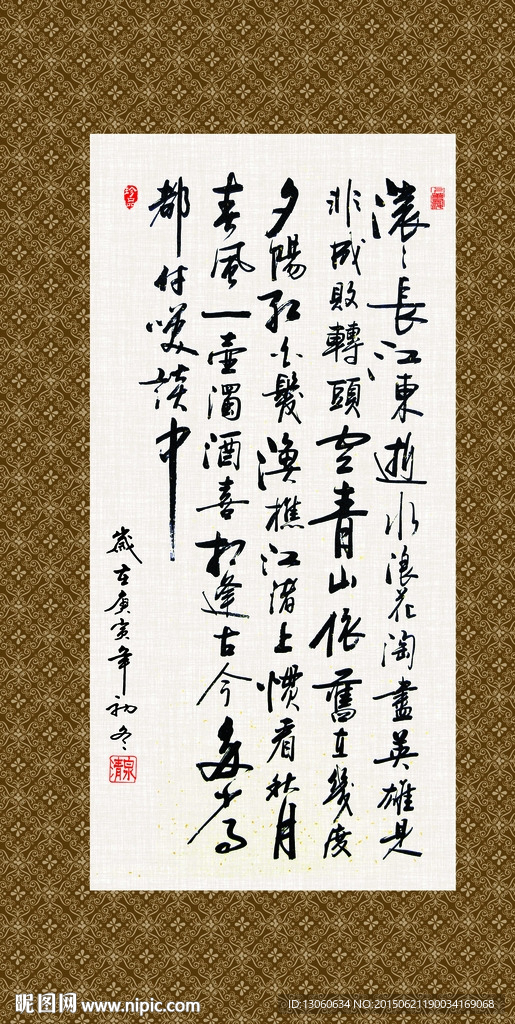 滾々長江東逝水浪花淘盡英雄是
非成敗轉頭空青山依舊在幾度
夕陽紅白髮漁樵江渚上慣看秋月
春風一壺濁酒喜相逢古今多少事
都付笑談中
歲在庚寅年初冬
昵图网 www.nipic.com
ID:13060634 NO:20150621190034169068